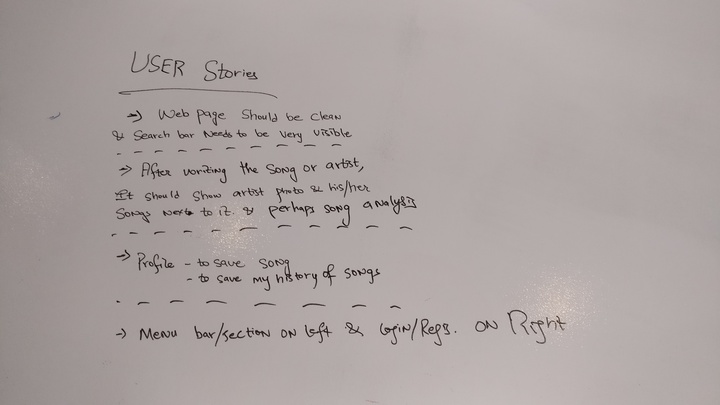 USER Stories
→ Web page should be clean
& Search bar Needs to be very visible
→ After writing the song or artist,
It should show artist photo & his/her
songs next to it. & perhaps song analysis
→ Profile - to save song
- to save my history of songs
→ Menu bar/section on left & login/Regs. on Right